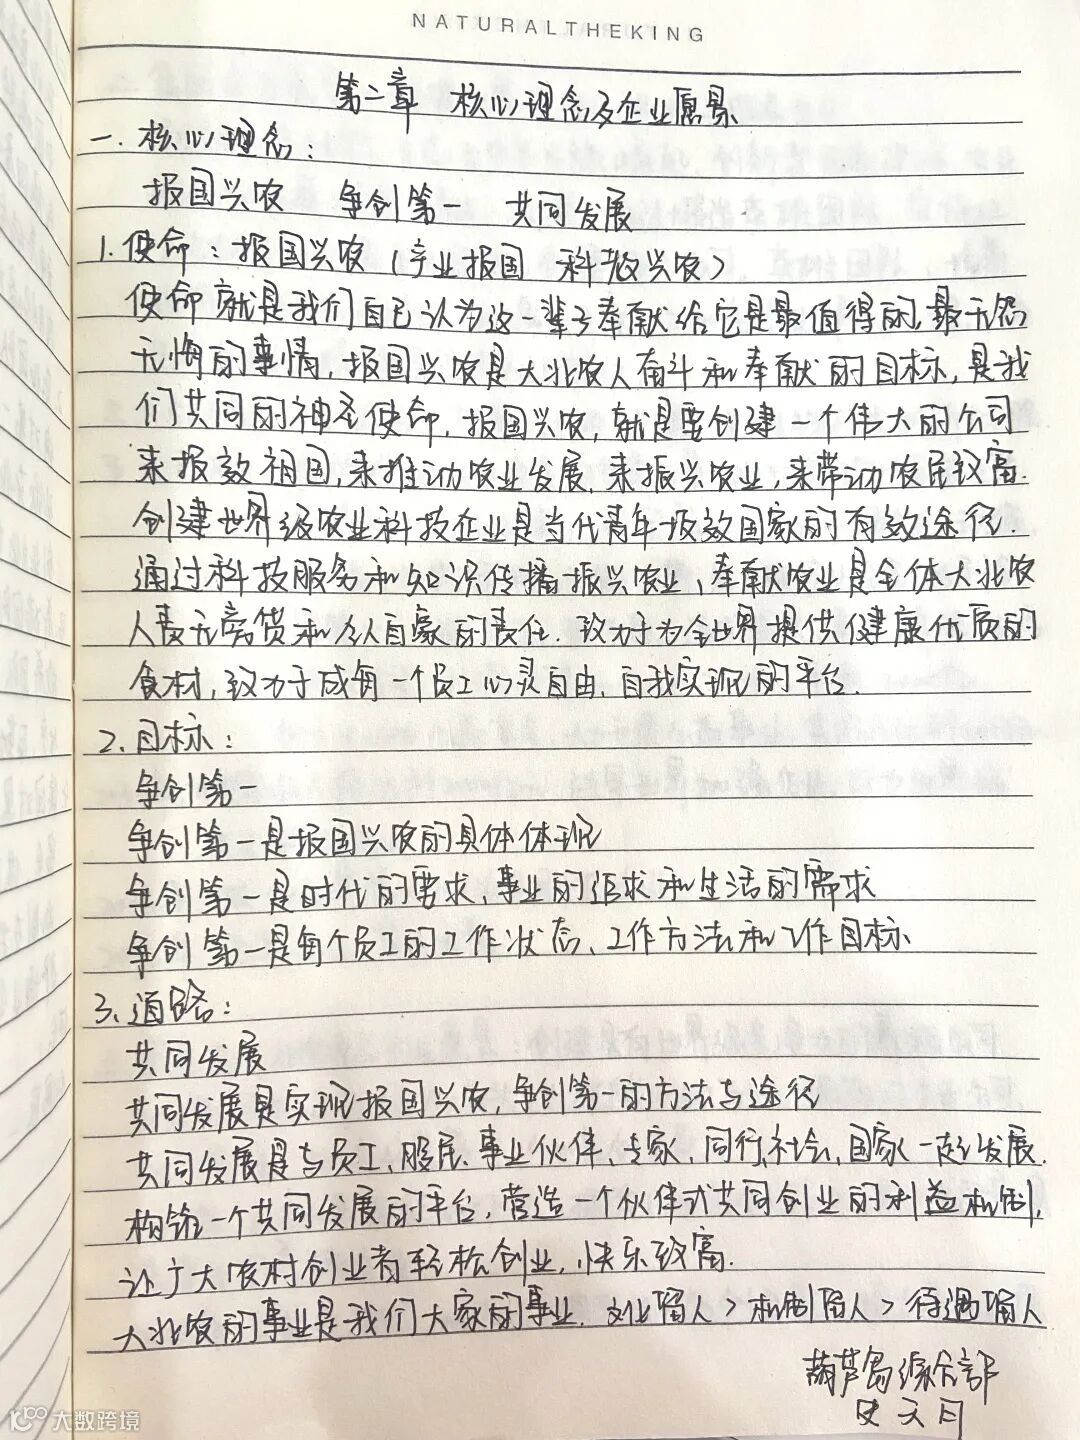 NATURALTHEKING
第二章 核心理念及企业愿景
一. 核心理念:
报国兴农 争创第一 共同发展
1. 使命: 报国兴农(产业报国 科教兴农)
使命就是我们自己认为这一辈子奉献给它是最值得的,最无怨
无悔的事情,报国兴农是大北农人奋斗和奉献的目标,是我
们共同的神圣使命,报国兴农,就是要创建一个伟大的公司
来报效祖国,来推动农业发展,来振兴农业,来带动农民致富.
创建世界级农业科技企业是当代青年报效国家的有效途径.
通过科技服务和知识传播振兴农业、奉献农业是全体大北农
人责无旁贷和引以自豪的责任.致力于为全世界提供健康优质的
食材,致力于成每一个员工心灵自由、自我实现的平台.
2. 目标:
争创第一
争创第一是报国兴农的具体体现
争创第一是时代的要求、事业的追求和生活的需求
争创第一是每个员工的工作状态、工作方法和工作目标
3. 道路:
共同发展
共同发展是实现报国兴农,争创第一的方法与途径
共同发展是与员工、股东、事业伙伴、专家、同行、社会、国家一起发展.
构筑一个共同发展的平台,营造一个伙伴式共同创业的利益机制,
让广大农村创业者轻松创业,快乐致富.
大北农的事业是我们大家的事业. 文化留人>机制留人>待遇留人
葫芦岛综合部
史天月
大数跨境